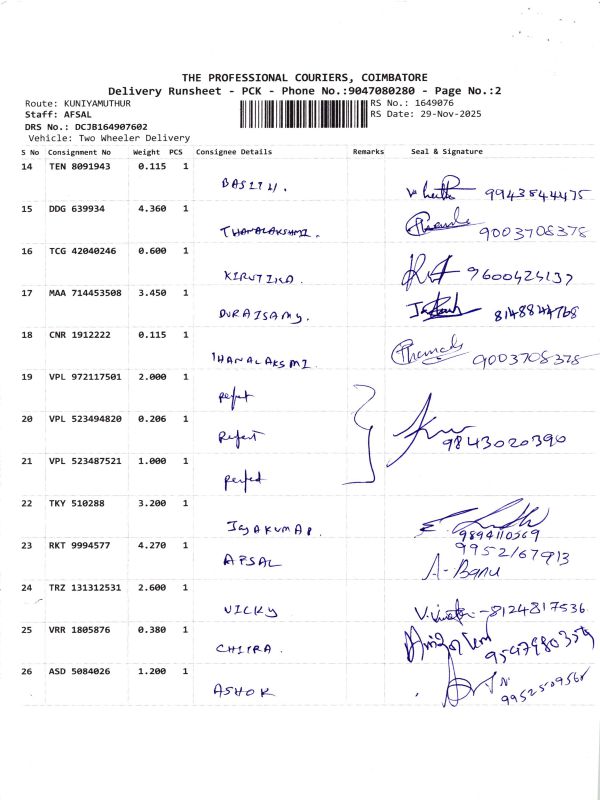 THE PROFESSIONAL COURIERS, COIMBATORE
Delivery Runsheet - PCK - Phone No.:9047080280 - Page No.:2
Route: KUNIYAMUTHUR RS No.: 1649076
Staff: AFSAL RS Date: 29-Nov-2025
DRS No.: DCJB164907602
Vehicle: Two Wheeler Delivery
S No Consignment No Weight PCS Consignee Details Remarks Seal & Signature
14 TEN 8091943 0.115 1
BASITH. 9943544475
15 DDG 639934 4.360 1
THANALAKSHMI. 9003708378
16 TCG 42040246 0.600 1
KIRUTIKA. 9600424137
17 MAA 714453508 3.450 1
DURAISAMY. 8148844768
18 CNR 1912222 0.115 1
THANALAKSMI. 9003708378
19 VPL 972117501 2.000 1
perfect
20 VPL 523494820 0.206 1
9843020390
21 VPL 523487521 1.000 1
perfect
22 TKY 510288 3.200 1
JAYAKUMAR. 9894110569
23 RKT 9994577 4.270 1
9952167913
AFSAL A- Banu
24 TRZ 131312531 2.600 1
VICKY 8124817536
25 VRR 1805876 0.380 1
CHITRA. 9547980359
26 ASD 5084026 1.200 1
ASHOK 9952509562